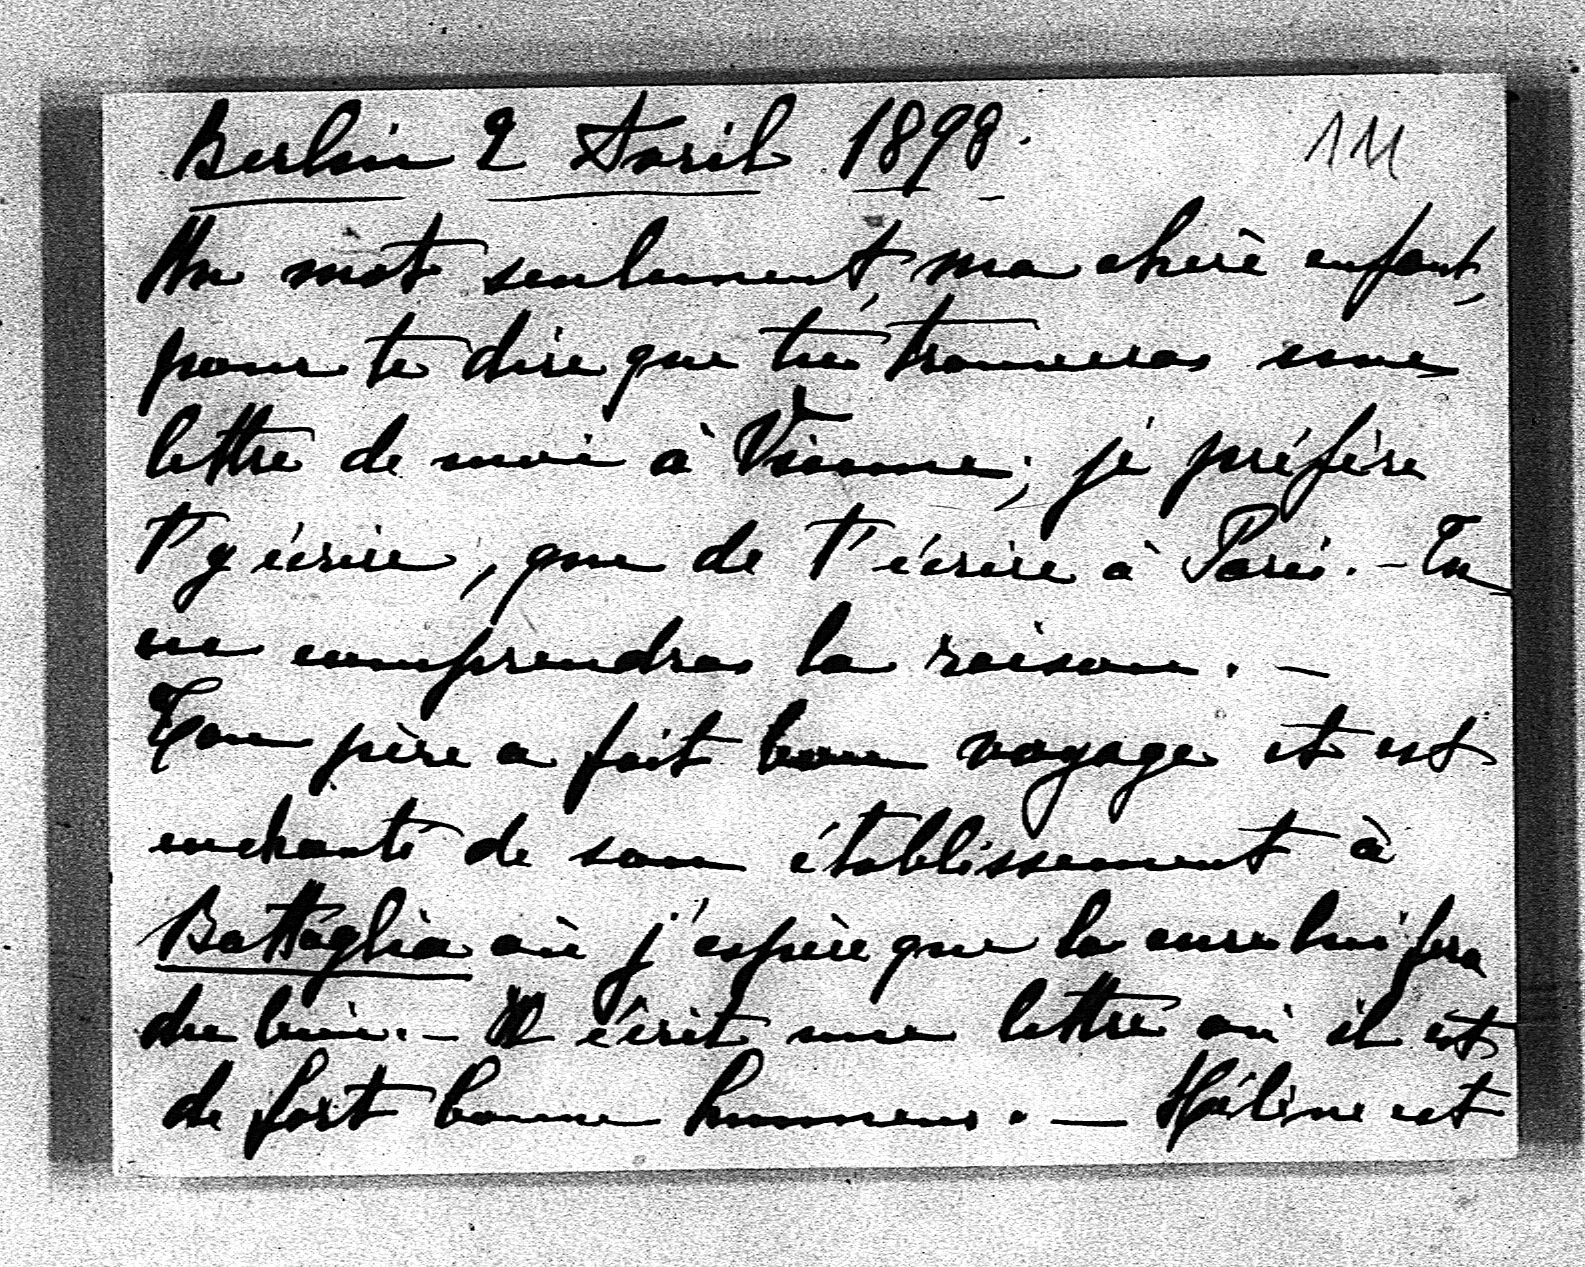 Berlin 2 Avril 1898. 111
Un mot seulement, ma chère enfant,
pour te dire que tu trouveras une
lettre de moi à Vienne; je préfère
t'y écrire, que de t'écrire à Paris. - Tu
en comprendras la raison. —
Ton père a fait bon voyage et est
enchanté de son établissement à
Battaglia où j'espère que la cure lui fera
du bien. - Il écrit une lettre où il est
de fort bonne humeur. — Hélène est